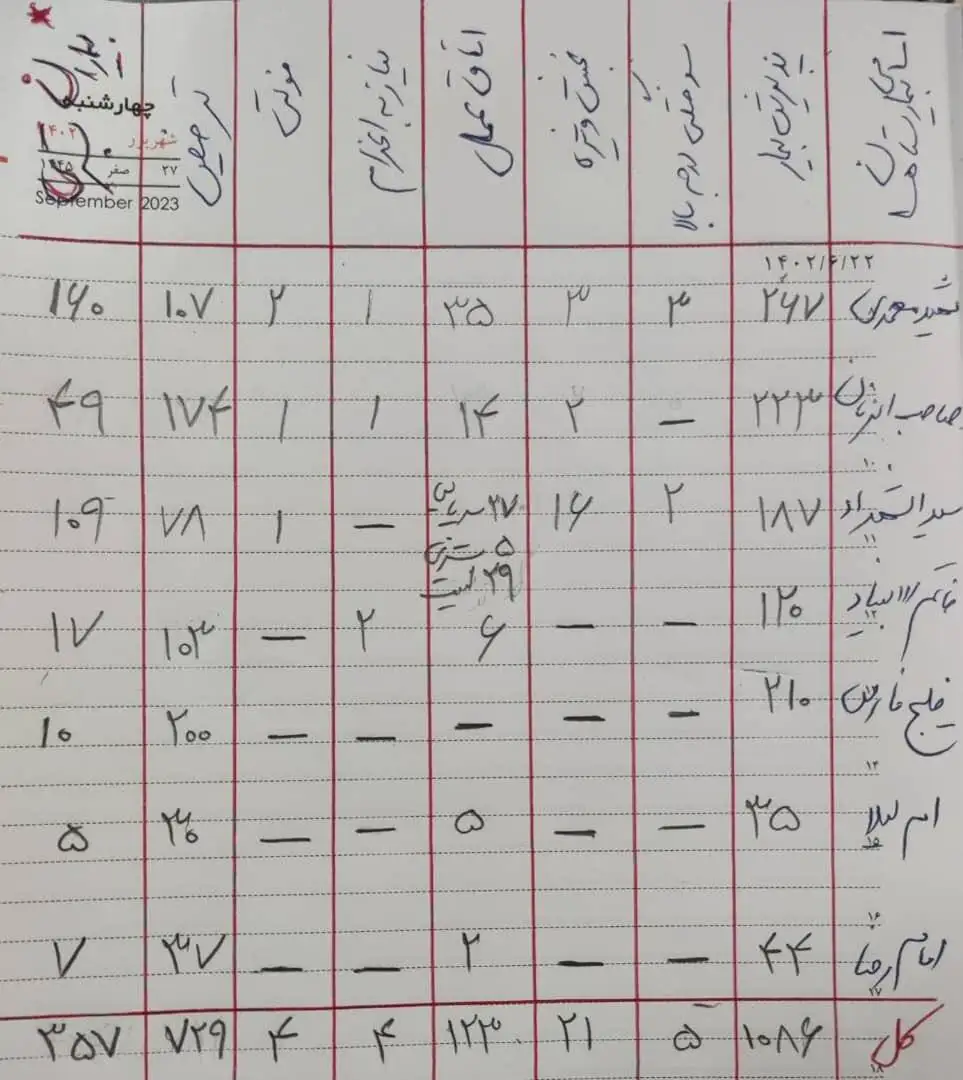 اسامی بیمارستان ها پذیرش بیمار سوختگی درجه بالا اتاق عمل نیاز به اعزام فوتی ترخیص
چهارشنبه
۱۴۰۲ شهریور
۲۷ صفر ۱۴۴۵
September 2023
۱۴۰۲/۶/۲۲
شهید محمدی ۲۶۷ ۳ ۳ ۳۵ ۱ ۲ ۱۰۷ ۱۶۰
صاحب الزمان ۲۲۳ — ۲ ۱۴ ۱ ۱ ۱۷۴ ۴۹
۱۰
سید الشهداء ۱۸۷ ۲ ۱۶ ۲۷ سرپایی — ۱ ۷۸ ۱۰۹
۱۱
۵ بستری
۲۹
خاتم الانبیاء ۱۲۰ — — ۶ ۲ — ۱۰۳ ۱۷
۱۲
خلیج فارس ۲۱۰ — — — — — ۲۰۰ ۱۰
۱۴
ام لیلا ۳۵ — — ۵ — — ۳۰ ۵
۱۵
۱۶
امام رضا ۴۴ — — ۲ — — ۳۷ ۷
۱۷
کل ۱۰۸۶ ۵ ۲۱ ۱۲۳ ۴ ۴ ۷۲۹ ۳۵۷
۱۸